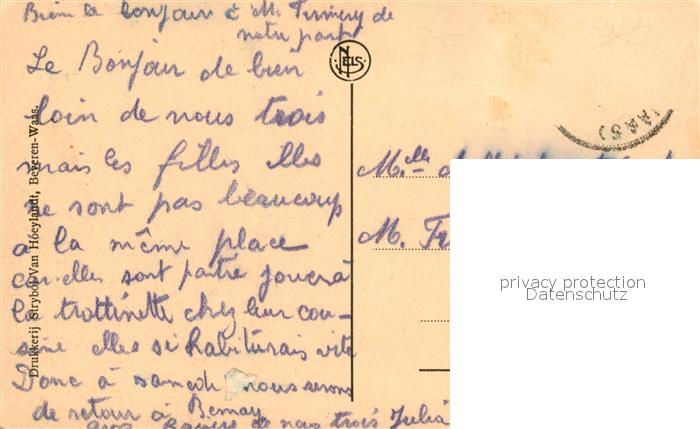 Bien le bonjour à M. Turnery de
notre part
Le Bonjour de bien
loin de nous trois
mais les filles elles
ne sont pas beaucoup
a la même place
car elles sont partie joucrà
la trottinette chez leur cou-
sine elles si habiturais vite
Donc à samedi nous serons
de retour à Bernay
de nous trois Julia
NELS
Drukkerij Strybol-Van Hoeylandt, Beveren-Waas.
(WAAS)
M.elle
M. Fr
privacy protection
Datenschutz